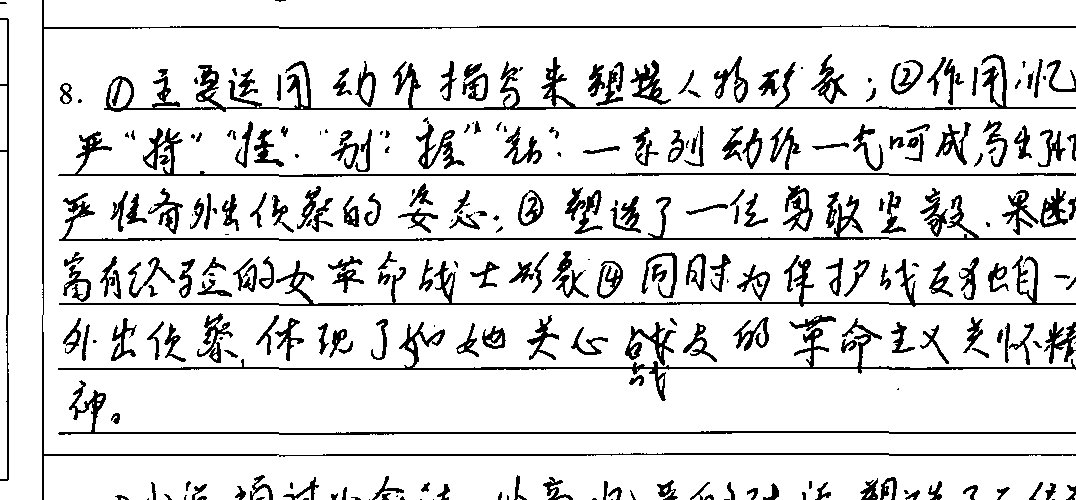 8. ①主要运用动作描写来塑造人物形象;②作用:忆
严"持"."挂"."别"."握""钻".一系列动作一气呵成,写出
严准备外出侦察的姿态;③塑造了一位勇敢坚毅、果断
富有经验的女革命战士形象④同时为保护战友独自一
外出侦察,体现了她关心战友的革命主义关怀精
战
神。
小说